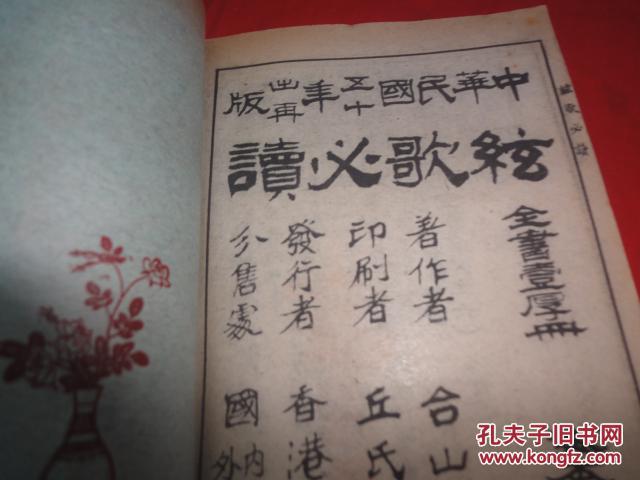 中華民國五十年再出版
絃歌必讀
全書壹厚冊
著作者 台山
印刷者 丘氏
發行者 香港
分售處 國內外
孔夫子旧书网
www.kongfz.com